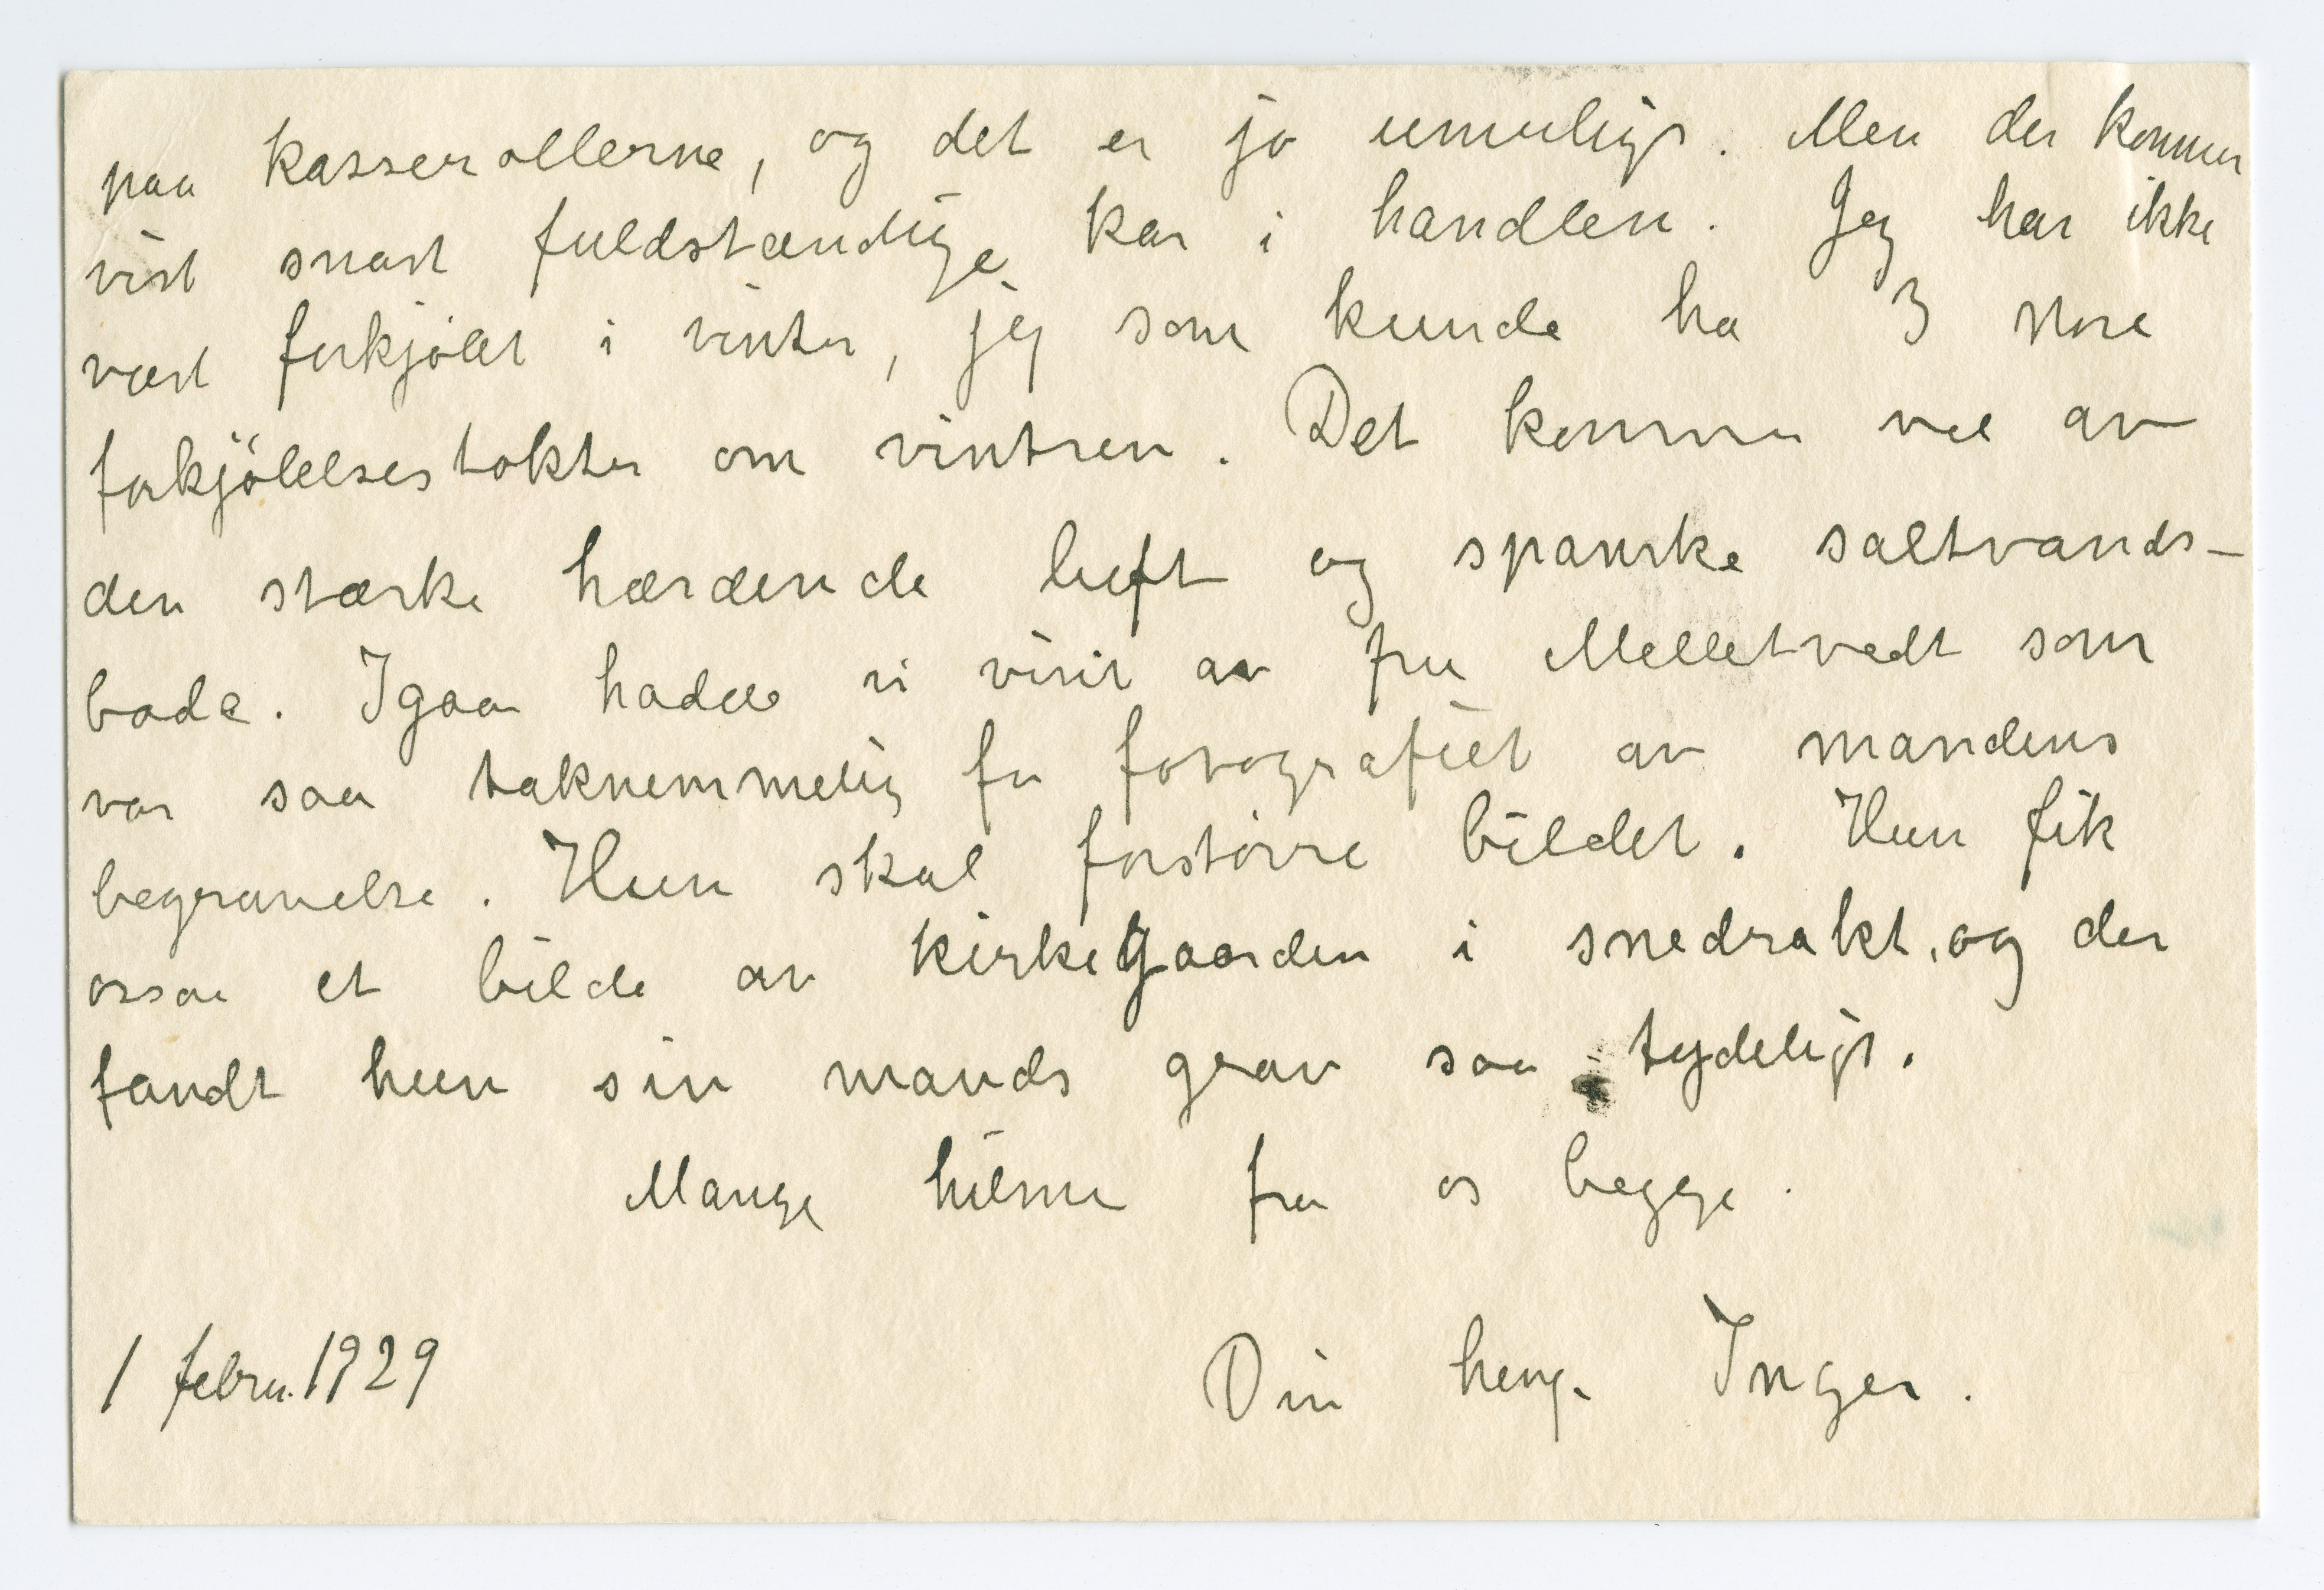 paa kasserollerne, og det er jo umuligt. Men der kommer
vist snart fuldstændige kar i handlen. Jeg har ikke
vært forkjölet i vinter, jeg som kunde ha 3 store
forkjölelsestokter om vintren. Det kommer vel av
den stærke hærdende luft og spanske saltvands-
bade. Igaar hadde vi visit av fru Melletvedt som
var saa taknemmelig for fotografiet av mandens
begravelse. Hun skal forstörre bildet. Hun fik
ossaa et bilde av kirkegaarden i snedrakt, og der
fandt hun sin mands grav saa tydeligt.
Mange hilsner fra os begge.
1 febru. 1929 Din heng. Inger.